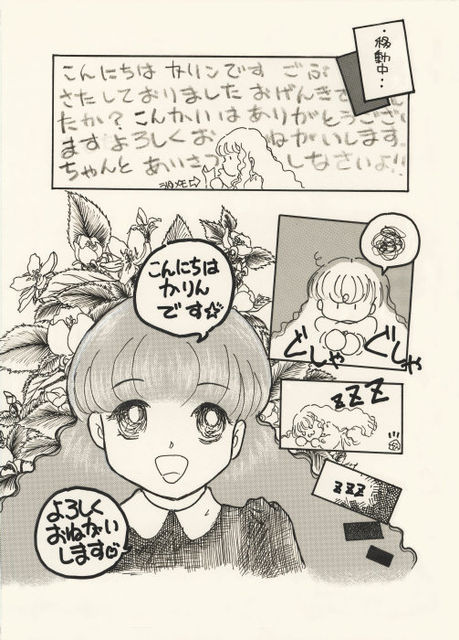 ・移動中・・・
こんにちは カリンです ごぶ
さたしておりました おげんきで
たか? こんかいは ありがとうござい
ます よろしくおねがいします
ちゃんと あいさつ しなさいよ!!
こんにちは
かりん
です☆
どしゃ
どしゃ
zzz
zzz
よろしく
おねがい
します♡